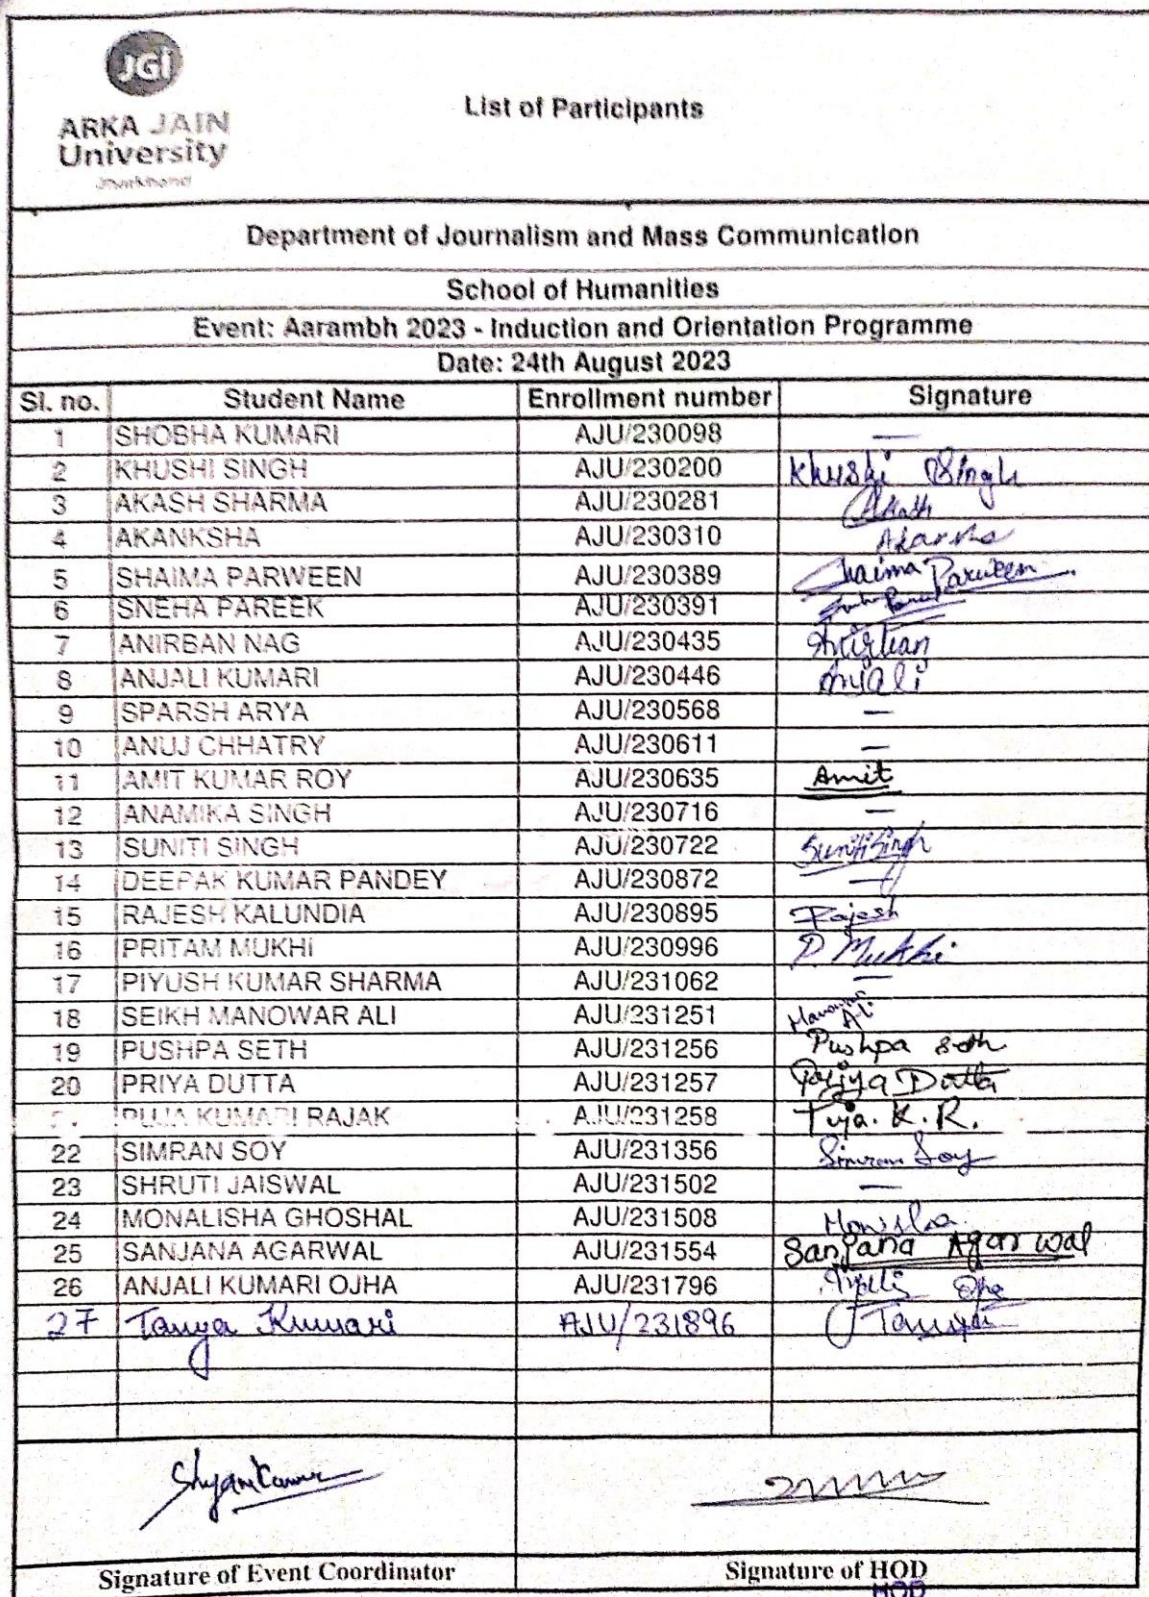 JGi
ARKA JAIN
University
Jharkhand
List of Participants
Department of Journalism and Mass Communication
School of Humanities
Event: Aarambh 2023 - Induction and Orientation Programme
Date: 24th August 2023
Sl. no. Student Name Enrollment number Signature
1 SHOBHA KUMARI AJU/230098 —
2 KHUSHI SINGH AJU/230200 Khushi Singh
3 AKASH SHARMA AJU/230281 Akash
4 AKANKSHA AJU/230310
5 SHAIMA PARWEEN AJU/230389 Shaima Parween
6 SNEHA PAREEK AJU/230391
7 ANIRBAN NAG AJU/230435 Anirban
8 ANJALI KUMARI AJU/230446 Anjali
9 SPARSH ARYA AJU/230568 —
10 ANUJ CHHATRY AJU/230611 —
11 AMIT KUMAR ROY AJU/230635 Amit
12 ANAMIKA SINGH AJU/230716 —
13 SUNITI SINGH AJU/230722 Suniti Singh
14 DEEPAK KUMAR PANDEY AJU/230872 —
15 RAJESH KALUNDIA AJU/230895 Rajesh
16 PRITAM MUKHI AJU/230996 P Mukhi
17 PIYUSH KUMAR SHARMA AJU/231062 —
18 SEIKH MANOWAR ALI AJU/231251 Manowar Ali
19 PUSHPA SETH AJU/231256 Pushpa Seth
20 PRIYA DUTTA AJU/231257 Priya Dutta
PUJA KUMARI RAJAK AJU/231258 Puja. K. R.
22 SIMRAN SOY AJU/231356 Simran Soy
23 SHRUTI JAISWAL AJU/231502 —
24 MONALISHA GHOSHAL AJU/231508
25 SANJANA AGARWAL AJU/231554 Sanjana Agarwal
26 ANJALI KUMARI OJHA AJU/231796
27 Tanya Kumari AJU/231896 Tanya
Signature of Event Coordinator Signature of HOD
HOD